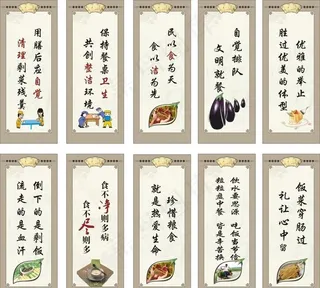 用膳后应自觉
清理剩菜残羹
保持餐桌卫生
共创整洁环境
民以食为天
食以洁为先
自觉排队
文明就餐
优雅的举止
胜过优美的体型
倒下的是剩饭
流走的是血汗
食不净则多病
食不尽则多
珍惜粮食
就是热爱生命
饮水要思源
吃饭当节俭
粒粒盘中餐
皆是辛苦换
饭菜穿肠过
礼让心中留